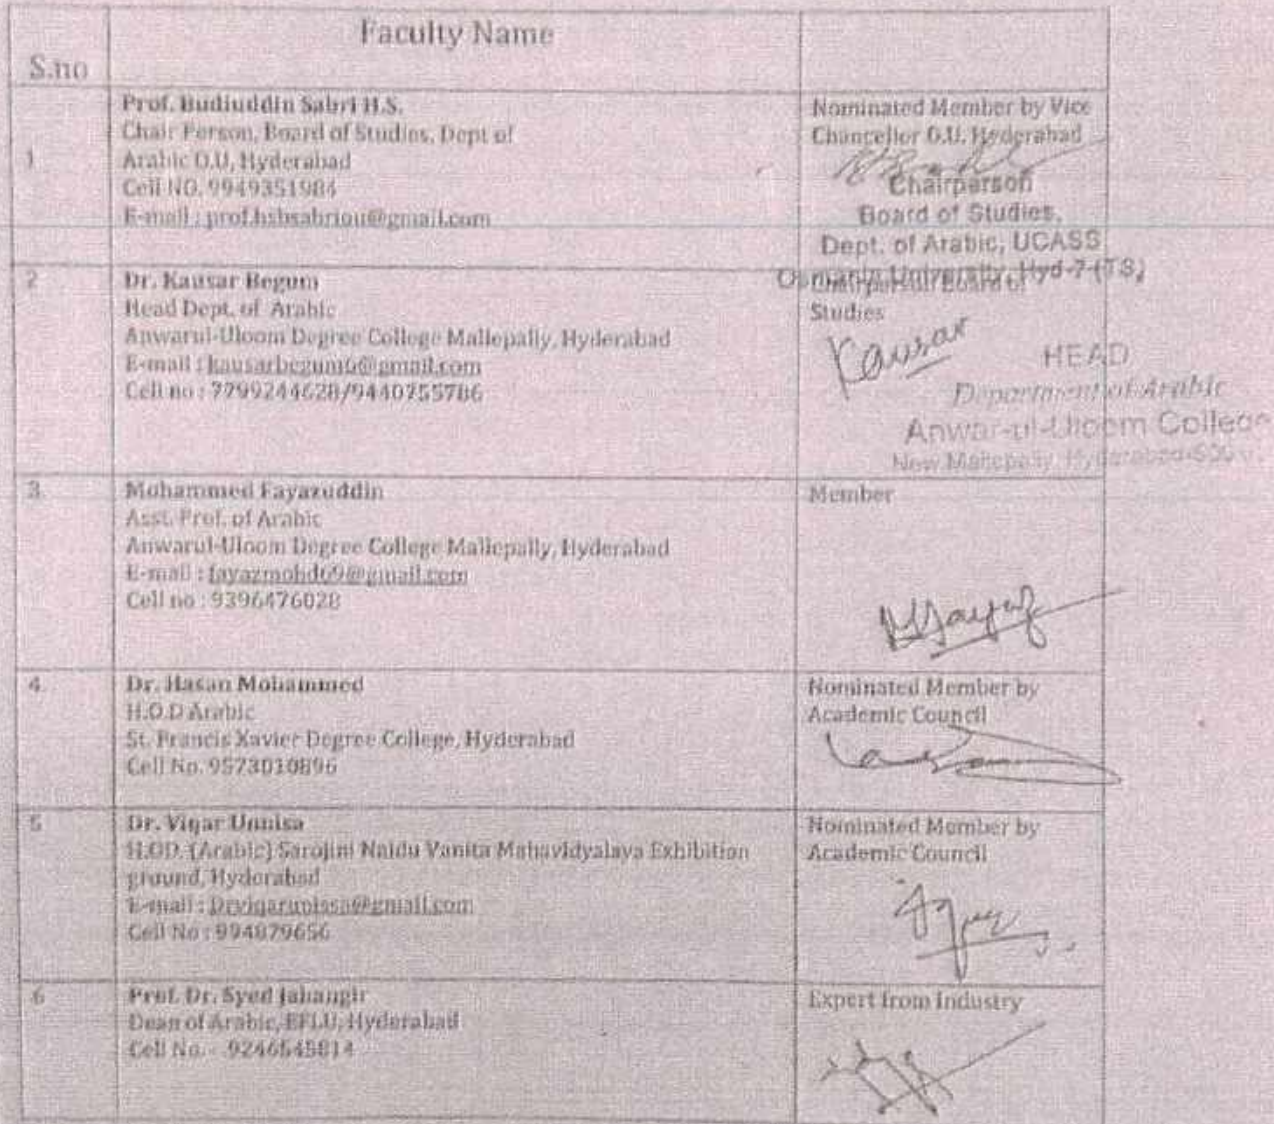 Faculty Name
S.no
1
Prof. Budiuddin Sabri H.S.
Chair Person, Board of Studies, Dept of
Arabic O.U, Hyderabad
Cell NO. 9949351984
E-mail : prof.hsbsabriou@gmail.com
Nominated Member by Vice
Chancellor O.U. Hyderabad
Chairperson
Board of Studies,
Dept. of Arabic, UCASS
Osmania University, Hyd-7 (TS)
2
Dr. Kausar Begum
Head Dept. of Arabic
Anwarul-Uloom Degree College Mallepally, Hyderabad
E-mail : kausarbegum6@gmail.com
Cell no : 7799244628/9440755786
Chairperson Board of
Studies
Kausar
HEAD
Department of Arabic
Anwar-ul-Uloom College
New Mallepally, Hyderabad
3.
Mohammed Fayazuddin
Asst. Prof. of Arabic
Anwarul-Uloom Degree College Mallepally, Hyderabad
E-mail : fayazmohd69@gmail.com
Cell no : 9396476028
Member
4.
Dr. Hasan Mohammed
H.O.D Arabic
St. Francis Xavier Degree College, Hyderabad
Cell No. 9573010896
Nominated Member by
Academic Council
5
Dr. Viqar Unnisa
H.OD. (Arabic) Sarojini Naidu Vanita Mahavidyalaya Exhibition
ground, Hyderabad
E-mail : Drviqarunissa@gmail.com
Cell No : 994879656
Nominated Member by
Academic Council
6
Prof. Dr. Syed Jahangir
Dean of Arabic, EFLU, Hyderabad
Cell No. - 9246545814
Expert from Industry